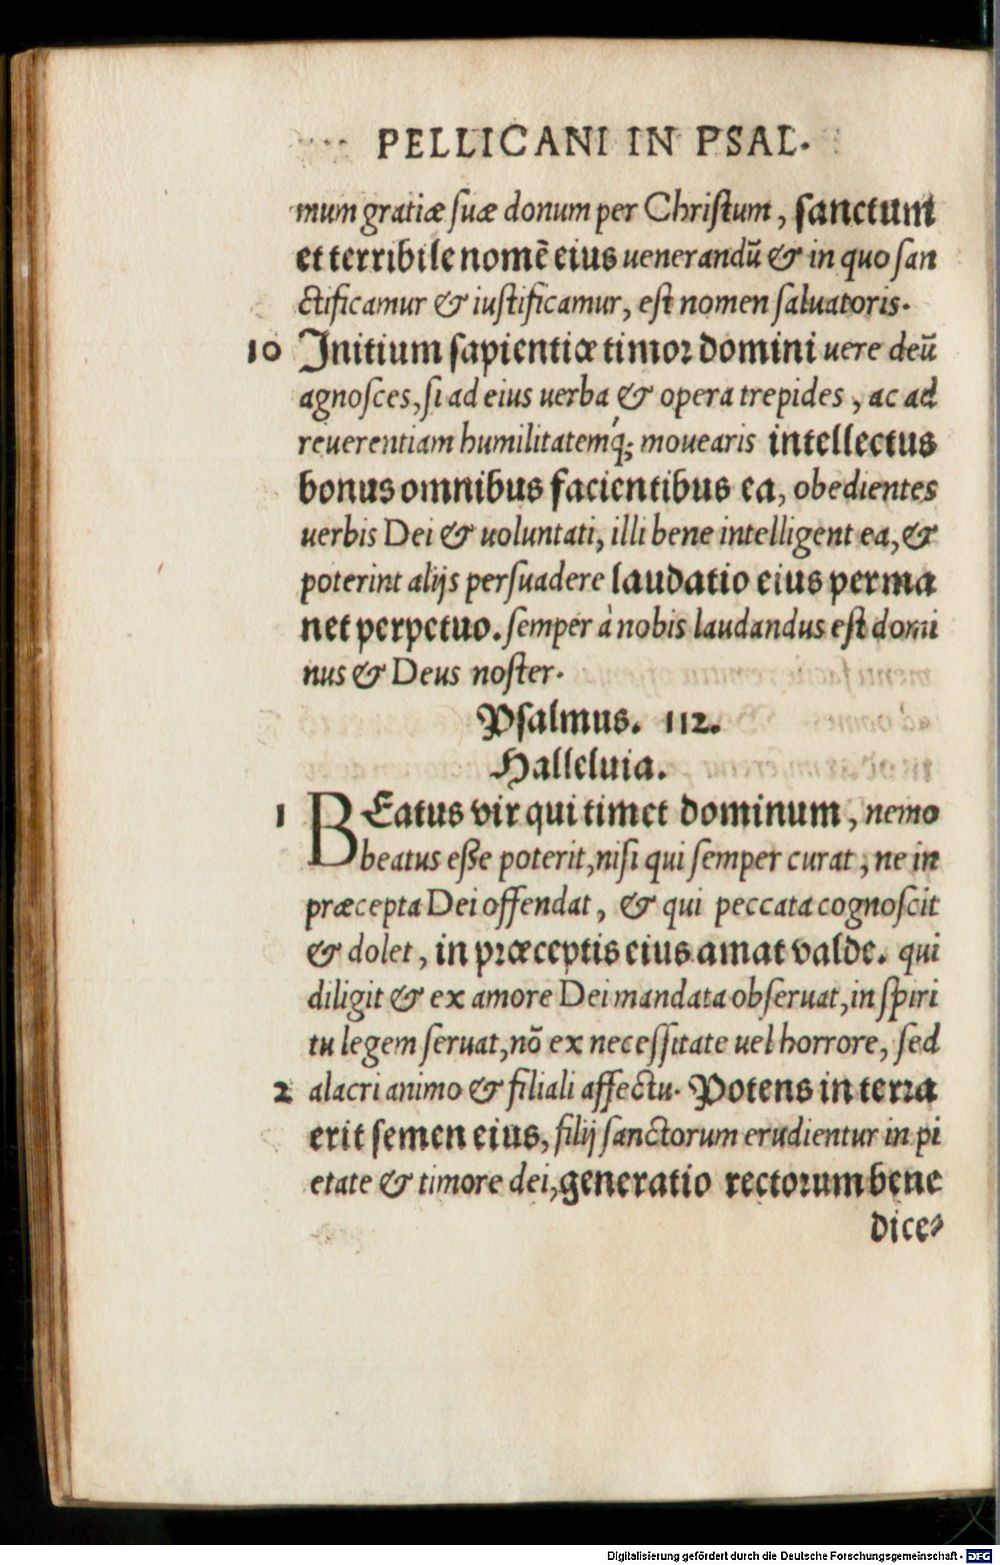 PELLICANI IN PSAL.
mum gratiæ suæ donum per Christum, sanctum
et terribile nomẽ eius uenerandũ & in quo san
ctificamur & iustificamur, est nomen saluatoris.
10 Initium sapientiæ timor domini uere deũ
agnosces, si ad eius uerba & opera trepides, ac ad
reuerentiam humilitatemq́; mouearis intellectus
bonus omnibus facientibus ea, obedientes
uerbis Dei & uoluntati, illi bene intelligent ea, &
poterint alijs persuadere laudatio eius perma
net perpetuo. semper à nobis laudandus est domi
nus & Deus noster.
Psalmus. 112.
Halleluia.
1 BEatus vir qui timet dominum, nemo
beatus esse poterit, nisi qui semper curat, ne in
præcepta Dei offendat, & qui peccata cognoscit
& dolet, in præceptis eius amat valde. qui
diligit & ex amore Dei mandata obseruat, in spiri
tu legem seruat, nõ ex necessitate uel horrore, sed
2 alacri animo & filiali affectu. Potens in terra
erit semen eius, filij sanctorum erudientur in pi
etate & timore dei, generatio rectorum bene
dice⸗
Digitalisierung gefördert durch die Deutsche Forschungsgemeinschaft - DFG